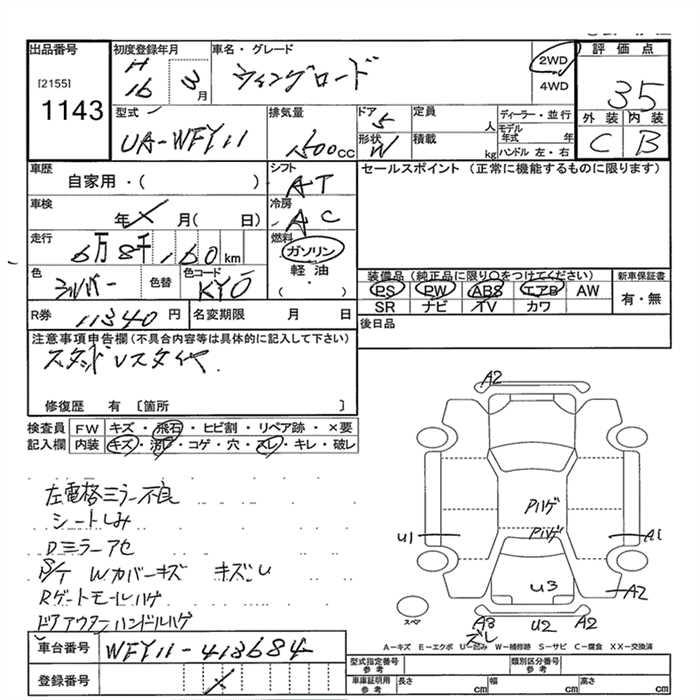 出品番号 初度登録年月 車名・グレード 評価点
[2155] H16 3月 ウィングロード 2WD 35
1143 4WD
型式 排気量 ドア 定員 ディーラー・並行 外装 内装
UA-WFY11 1500cc 5 人 モデル年式 年 C B
形状 W 積載 kg ハンドル 左・右
車歴 シフト セールスポイント (正常に機能するものに限ります)
自家用・( ) AT
車検 冷房
年 × 月( 日) AC
走行 燃料
6万8千160km ガソリン
軽油
色 色替 色コード ・
シルバー KY0 ( )
装備品(純正品に限り○をつけてください) 新車保証書
PS PW ABS エアB AW 有・無
SR ナビ TV カワ
R券 11340円 名変期限 月 日 後日品
注意事項申告欄(不具合内容等は具体的に記入して下さい)
スタッドレスタイヤ
修復歴 有 〔箇所 〕
検査員 FW キズ・飛石・ヒビ割・リペア跡・×要
記入欄 内装 キズ・汚レ・コゲ・穴・スレ・キレ・破レ
左電格ミラー不良
シートしみ
Dミラーアセ
Wカバーキズ キズ・U
Rゲートモールハゲ
ドアアウターハンドルハゲ
A2
Pハゲ
U1 Pハゲ A1
U3 A2
スペア A3 U2 A2
ズレ
A-キズ E-エクボ U-凹み W-補修跡 S-サビ C-腐食 XX-交換済
車台番号 WFY11-413684
登録番号 ×
型式指定番号 参考 類別区分番号 参考
車庫証明用 参考 長さ cm 幅 cm 高さ cm